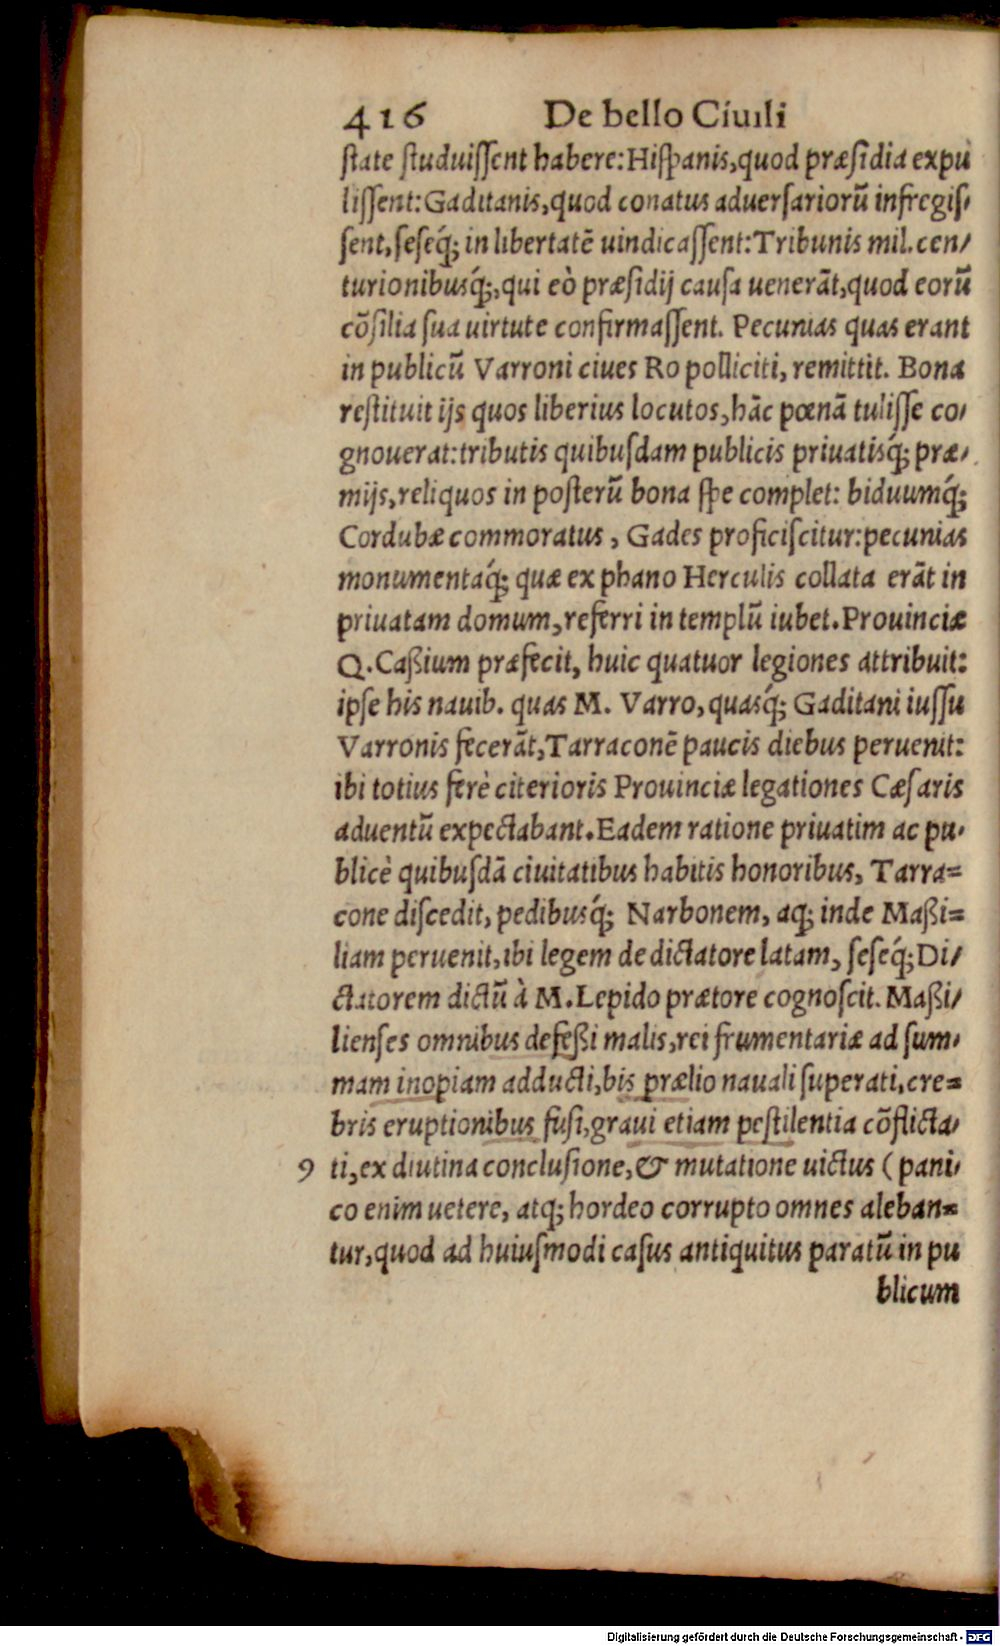 416 De bello Ciuili
ſtate ſtuduiſſent habere:Hiſpanis,quod præſidia expu
liſſent:Gaditanis,quod conatus aduerſariorũ infregiſ-
ſent,ſeſeq́; in libertatẽ uindicaſſent:Tribunis mil.cen-
turionibusq́;,qui eò præſidij cauſa uenerãt,quod eorũ
cõſilia ſua uirtute confirmaſſent. Pecunias quas erant
in publicũ Varroni ciues Ro polliciti, remittit. Bona
reſtituit ijs quos liberius locutos,hãc pœnã tuliſſe co-
gnouerat:tributis quibuſdam publicis priuatisq́; præ-
mijs,reliquos in poſterũ bona ſpe complet: biduumq́;
Cordubæ commoratus, Gades proficiſcitur:pecunias
monumentaq́; quæ ex phano Herculis collata erãt in
priuatam domum,referri in templũ iubet.Prouinciæ
Q.Caßium præfecit, huic quatuor legiones attribuit:
ipſe his nauib. quas M. Varro,quasq́; Gaditani iuſſu
Varronis fecerãt,Tarraconẽ paucis diebus peruenit:
ibi totius ferè citerioris Prouinciæ legationes Cæſaris
aduentũ expectabant.Eadem ratione priuatim ac pu-
blicè quibuſdã ciuitatibus habitis honoribus, Tarra=
cone diſcedit, pedibusq́; Narbonem, aq; inde Maßi=
liam peruenit,ibi legem de dictatore latam, ſeſeq́;Di-
ctatorem dictũ à M.Lepido prætore cognoſcit. Maßi-
lienſes omnibus defeßi malis,rei frumentariæ ad ſum-
mam inopiam adducti,bis prælio nauali ſuperati,cre=
bris eruptionibus fuſi,graui etiam peſtilentia cõflicta-
9 ti,ex diutina concluſione,& mutatione uictus (pani-
co enim uetere, atq; hordeo corrupto omnes aleban=
tur,quod ad huiuſmodi caſus antiquitus paratũ in pu
blicum
Digitalisierung gefördert durch die Deutsche Forschungsgemeinschaft - DFG